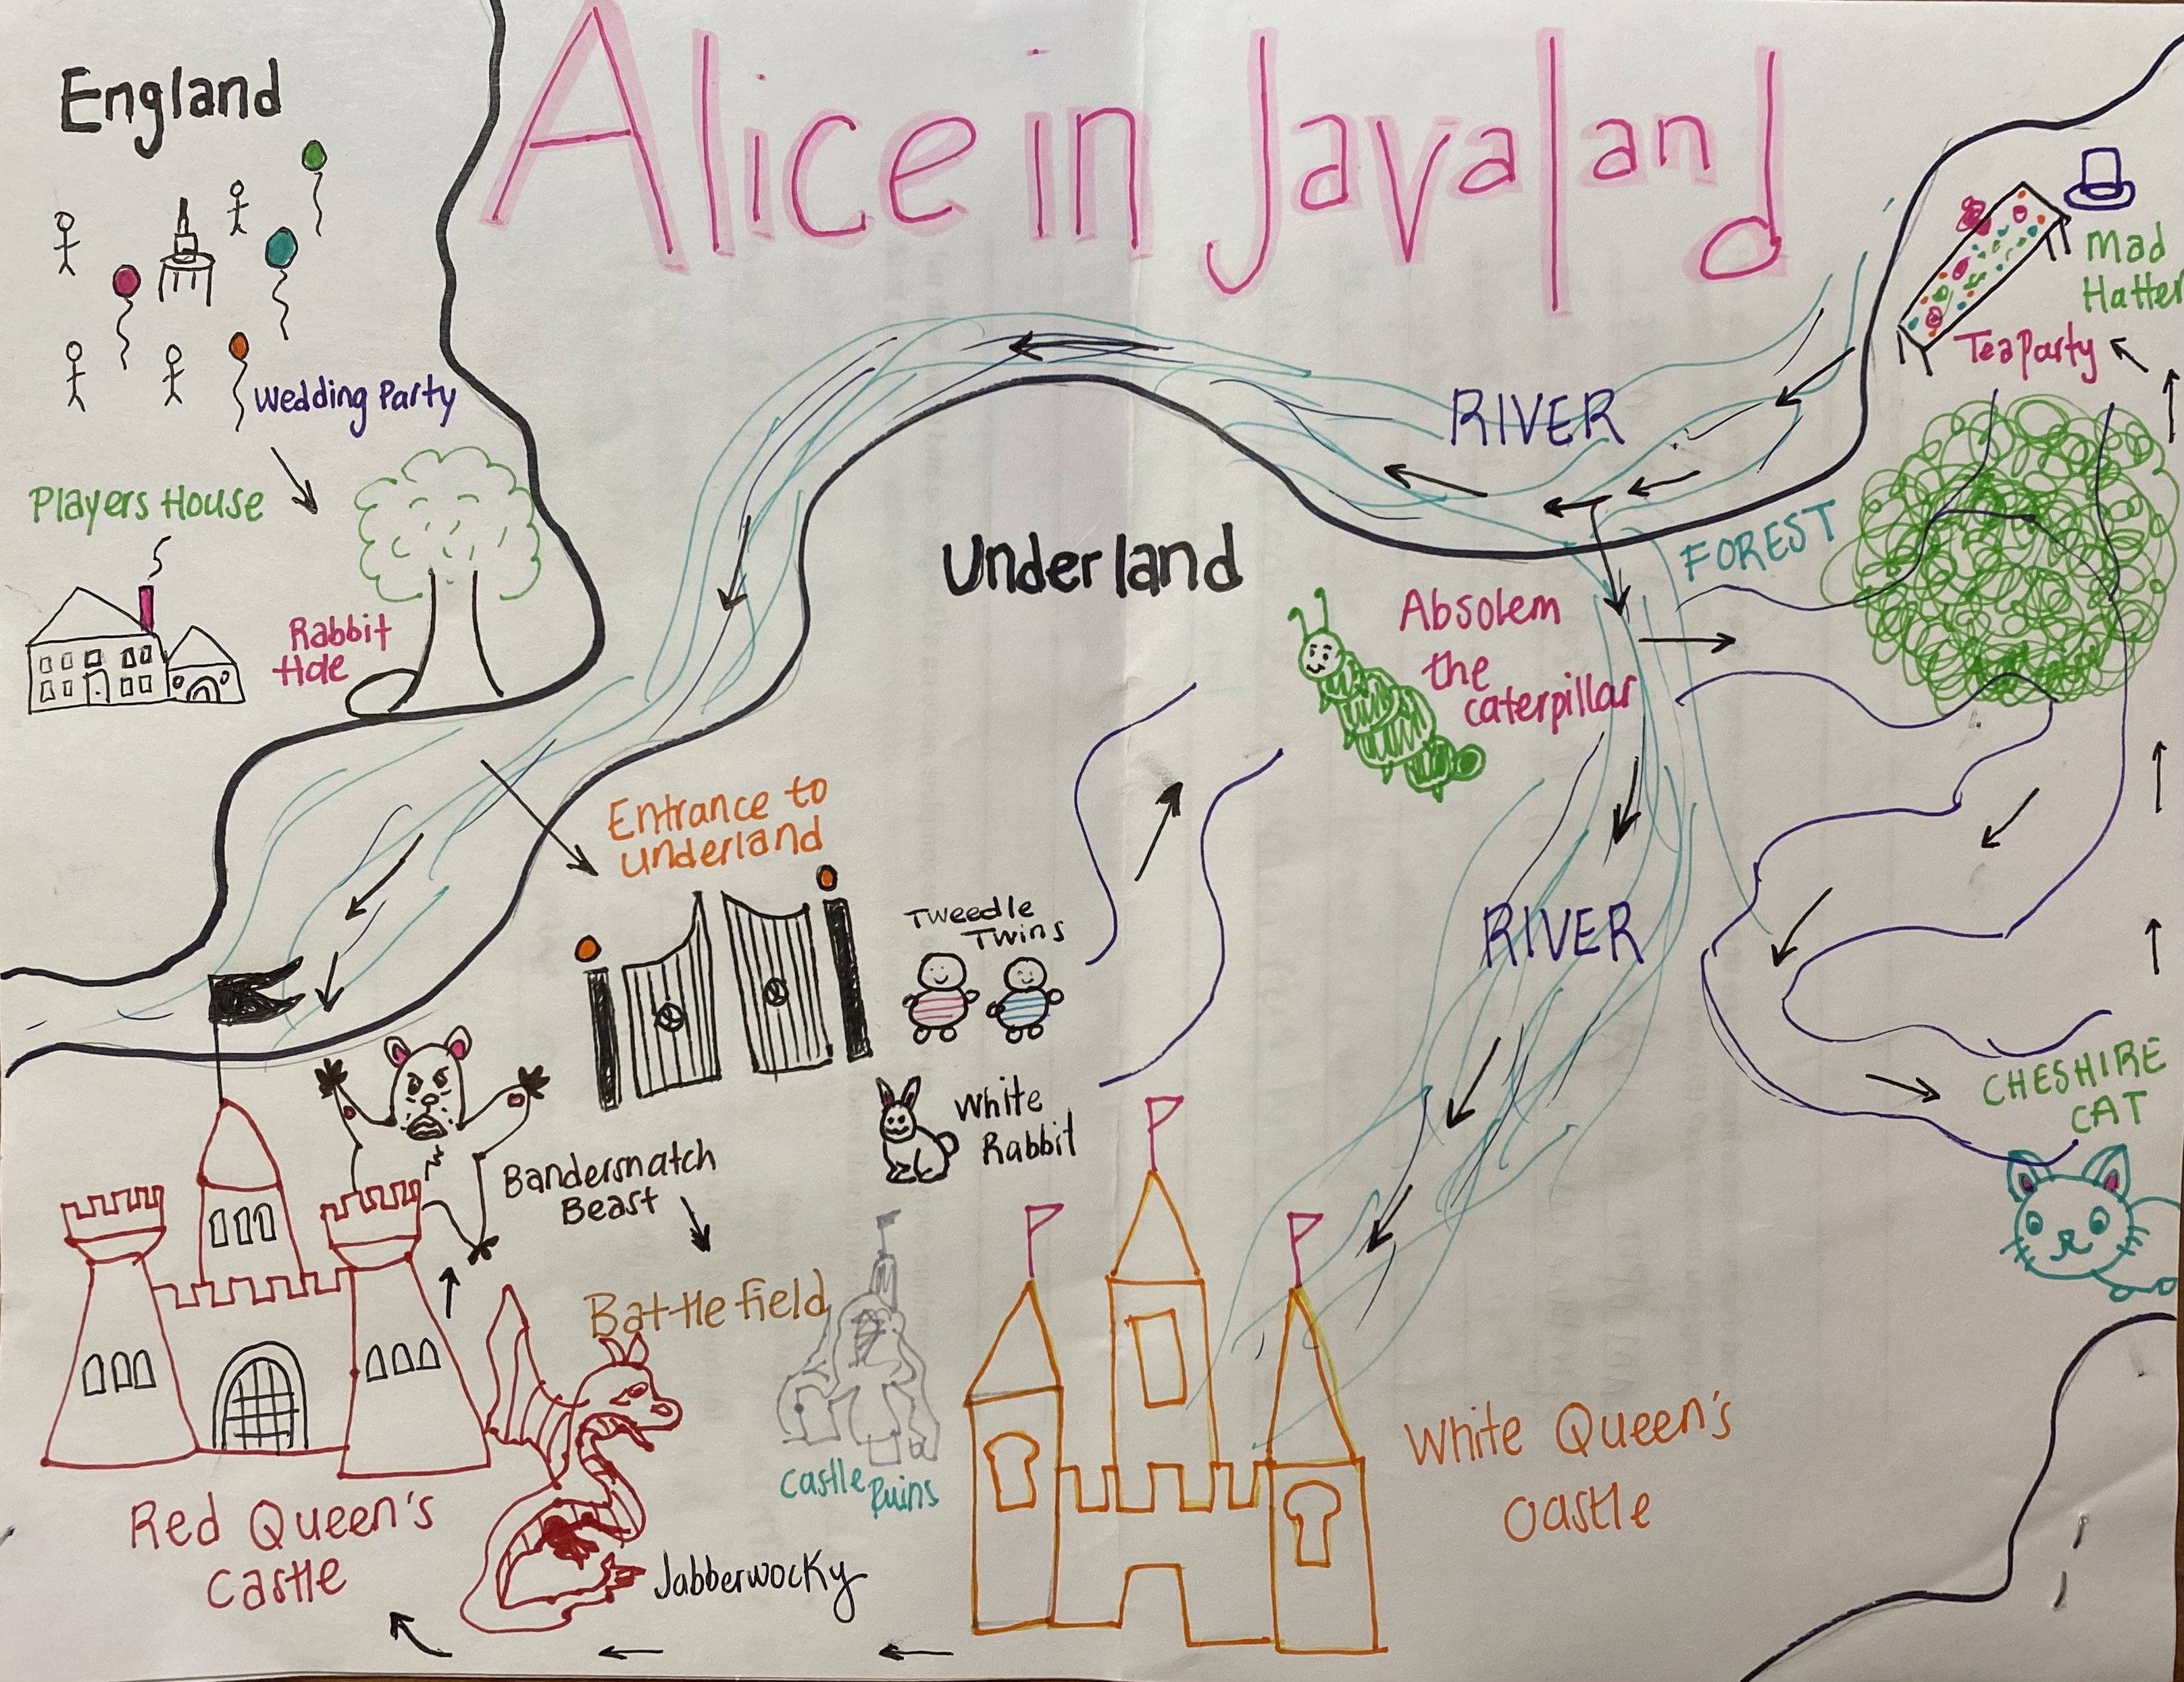 Alice in Javaland
England
Wedding Party
Players House
Rabbit
Hole
RIVER
Mad
Hatter
Tea Party
FOREST
Underland
Absolem
the
caterpillar
Entrance to
underland
Tweedle
Twins
RIVER
White
Rabbit
CHESHIRE
CAT
Bandersnatch
Beast
Battlefield
Castle
Ruins
White Queen's
Castle
Red Queen's
Castle
Jabberwocky